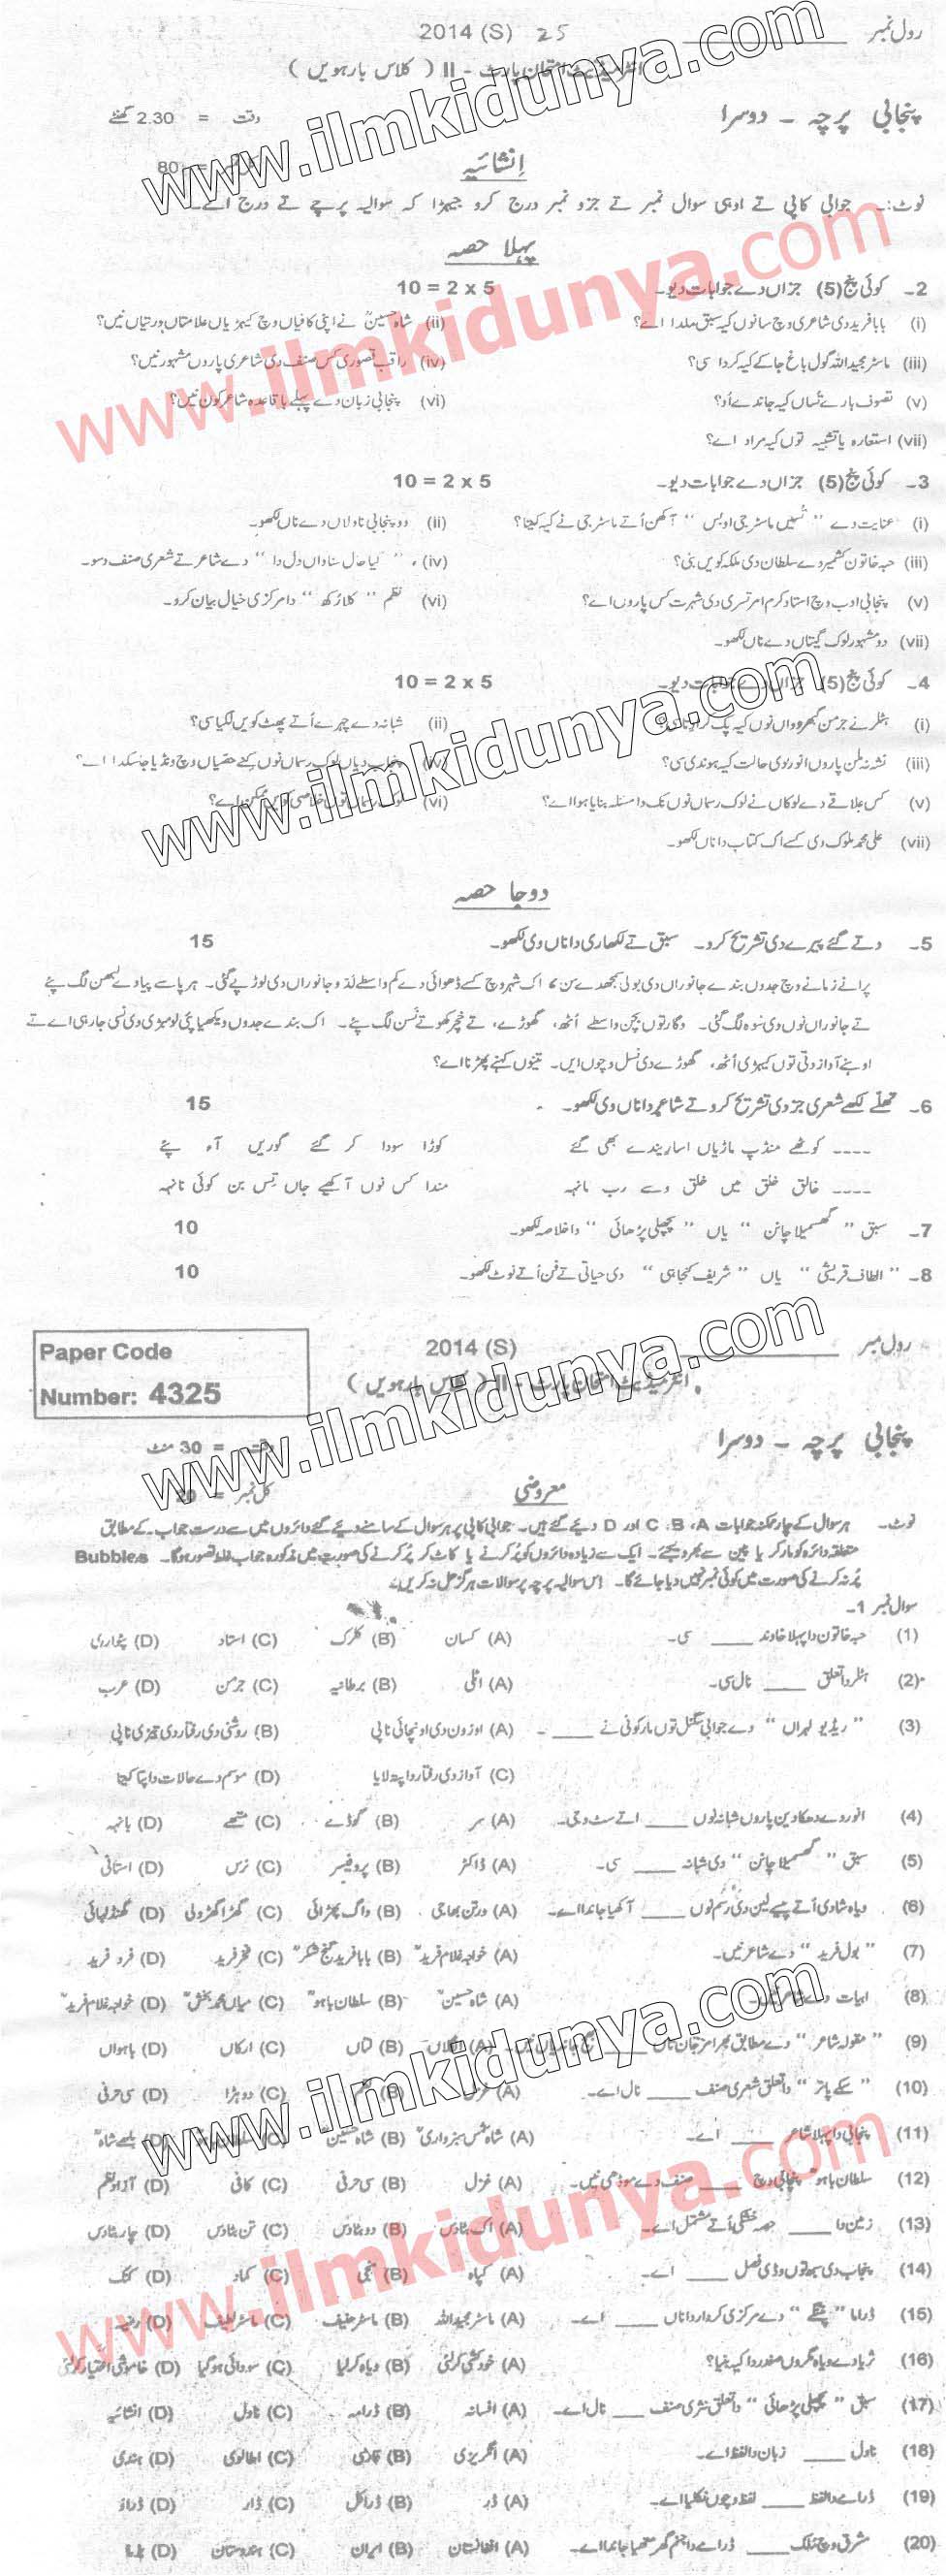 رول نمبر ________ 2014 (S) 25
انٹرمیڈیٹ امتحان پارٹ - II ( کلاس بارہویں )
پنجابی پرچہ - دوسرا وقت = 2.30 گھنٹے
انشائیہ 80 =
نوٹ:۔ جوابی کاپی تے اوہی سوال نمبر تے جزو نمبر درج کرو جیہڑا کہ سوالیہ پرچے تے درج اے۔
پہلا حصہ
2۔ کوئی پنج (5) جزاں دے جوابات دیو۔ 10 = 2 x 5
(i) بابا فرید دی شاعری وچ سانوں کیہ سبق ملدا اے؟ (ii) شاہ حسینؒ نے اپنی کافیاں وچ کیہڑیاں علامتاں ورتیاں نیں؟
(iii) ماسٹر مجید اللہ گول باغ جا کے کیہ کردا سی؟ (iv) راقب قصوری کس صنف دی شاعری پاروں مشہور نیں؟
(v) تصوف بارے تُساں کیہ جاندے اُو؟ (vi) پنجابی زبان دے پہلے باقاعدہ شاعر کون نیں؟
(vii) استعارہ یا تشبیہ توں کیہ مراد اے؟
3۔ کوئی پنج (5) جزاں دے جوابات دیو۔ 10 = 2 x 5
(i) عنایت دے " تُسیں ماسٹر جی او بس " آکھن اُتے ماسٹر جی نے کیہ کیتا؟ (ii) دو پنجابی ناولاں دے ناں لکھو۔
(iii) حبہ خاتون کشمیر دے سلطان دی ملکہ کویں بنی؟ (iv) " کیا حال سناواں دل دا " دے شاعر تے شعری صنف دسو۔
(v) پنجابی ادب وچ استاد کرم امرتسری دی شہرت کس پاروں اے؟ (vi) نظم " کلا رُکھ " دا مرکزی خیال بیان کرو۔
(vii) دو مشہور لوک گیتاں دے ناں لکھو۔
4۔ کوئی پنج (5) جزاں دے جوابات دیو۔ 10 = 2 x 5
(i) ہٹلر نے جرمن گبھرواں نوں کیہ پک (ii) شبانہ دے چہرے اُتے پھٹ کویں لگیا سی؟
(iii) نشہ نہ ملن پاروں انور دی حالت کیہ ہوندی سی؟ (iv) پنجاب دیاں لوک رسماں نوں کِنے حصّیاں وچ ونڈیا جا سکدا اے؟
(v) کس علاقے دے لوکاں نے لوک رسماں نوں نک دا مسئلہ بنایا ہویا اے؟ (vi) لوک رسماں توں خلاصی اے؟
(vii) علی محمد ملوک دی کسے اک کتاب دا ناں لکھو۔
دوجا حصہ
5۔ دتے گئے پیرے دی تشریح کرو۔ سبق تے لکھاری دا ناں وی لکھو۔ 15
پرانے زمانے وچ جدوں بندے جانوراں دی بولی بجھدے سن، اک شہر وچ کسے ڈھوائی دے کم واسطے لدّو جانوراں دی لوڑ پے گئی۔ ہر پاسے پیادے لبھن لگ پئے
تے جانوراں نوں وی سُوہ لگ گئی۔ وگار توں بچن واسطے اُٹھ، گھوڑے، تے خچر کھوتے نسن لگ پئے۔ اک بندے جدوں ویکھیا پئی لومبڑی وی نسی جا رہی اے تے
اوہنے آواز دتی توں کیہڑی اُٹھ، گھوڑے دی نسل وچوں ایں۔ تینوں کنہے پھڑنا اے؟
6۔ تھلے لکھے شعری جز دی تشریح کرو تے شاعر دا ناں وی لکھو۔ 15
---- کوٹھے منڈپ ماڑیاں اساریندے بھی گئے کوڑا سودا کر گئے گوریں آء پئے
---- خالق خلق میں خلق وسے رب مانہہ مندا کس نوں آکھیے جاں تِس بن کوئی نانہہ
7۔ سبق " گھسمیلا چانن " یاں " پچھلی پڑھائی " دا خلاصہ لکھو۔ 10
8۔ " الطاف قریشی " یاں " شریف کنجاہی " دی حیاتی تے فن اُتے نوٹ لکھو۔ 10
رول نمبر ________ 2014 (S) Paper Code
انٹرمیڈیٹ امتحان پارٹ - II ( کلاس بارہویں ) Number: 4325
پنجابی پرچہ - دوسرا وقت = 30 منٹ
معروضی کل نمبر = 20
نوٹ۔ ہر سوال کے چار ممکنہ جوابات A، B، C اور D دیئے گئے ہیں۔ جوابی کاپی پر ہر سوال کے سامنے دیئے گئے دائروں میں سے درست جواب کے مطابق
متعلقہ دائرہ کو مارکر یا پین سے بھر دیجئے۔ ایک سے زیادہ دائروں کو پُر کرنے یا کاٹ کر پُر کرنے کی صورت میں مذکورہ جواب غلط تصور ہوگا۔ Bubbles
پُر نہ کرنے کی صورت میں کوئی نمبر نہیں دیا جائے گا۔ اس سوالیہ پرچہ پر سوالات ہرگز حل نہ کریں۔
سوال نمبر 1۔
(1) حبہ خاتون دا پہلا خاوند ____ سی۔ (A) کسان (B) کلرک (C) استاد (D) پٹواری
(2) ہٹلر دا تعلق ____ نال سی۔ (A) اٹلی (B) برطانیہ (C) جرمن (D) عرب
(3) " ریڈیو لہراں " دے جوابی سگنل توں مارکونی نے ____ ۔ (A) اوزون دی اونچائی ناپی (B) روشنی دی رفتار دی تیزی ناپی
(C) آواز دی رفتار دا پتہ لایا (D) موسم دے حالات دا پتا کیتا
(4) انور دے دھکا دین پاروں شبانہ نوں ____ اتے سٹ وجی۔ (A) سر (B) گوڈے (C) متھے (D) بانہہ
(5) سبق " گھسمیلا چانن " دی شبانہ ____ سی۔ (A) ڈاکٹر (B) پروفیسر (C) نرس (D) استانی
(6) ویاہ شادی اُتے پیسے لین دی رسم نوں ____ آکھیا جاندا اے۔ (A) ورتن بھاجی (B) واگ پھڑائی (C) گھڑا گھڑولی (D) گھنڈ لہائی
(7) " بول فرید " دے شاعر نیں۔ (A) خواجہ غلام فریدؒ (B) بابا فرید گنج شکرؒ (C) فخر فرید (D) فرد فرید
(8) ابیات دے شاعر (A) شاہ حسینؒ (B) سلطان باہوؒ (C) میاں محمد بخشؒ (D) خواجہ غلام فریدؒ
(9) " مقولہ شاعر " دے مطابق بھرا مر جان تاں ____ (B) لتاں (C) ارکاں (D) باہواں
(10) " سکے پتر " دا تعلق شعری صنف ____ نال اے۔ (A) غزل (B) نظم (C) دوہڑا (D) سی حرفی
(11) پنجابی دا پہلا شاعر ____ اے۔ (A) شاہ شمس سبزواریؒ (B) شاہ حسینؒ (C) سلطان باہوؒ (D) بلھے شاہؒ
(12) سلطان باہوؒ پنجابی وچ ____ صنف دے موڈھی نیں۔ (A) غزل (B) سی حرفی (C) کافی (D) آزاد نظم
(13) زمین دا ____ حصہ خشکی اُتے مشتمل اے۔ (A) اک بٹا دس (B) دو بٹا دس (C) تن بٹا دس (D) چار بٹا دس
(14) پنجاب دی سبھ توں وڈی فصل ____ اے۔ (A) کپاہ (B) منجی (C) کماد (D) کنک
(15) ڈراما " پتنگے " دے مرکزی کردار دا ناں ____ اے۔ (A) ماسٹر مجید اللہ (B) ماسٹر حنیف (C) ماسٹر لطیف (D) رضیہ
(16) ثریا دے ویاہ مگروں صفدر دا کیہ بنیا؟ (A) خودکشی کر لئی (B) ویاہ کر لیا (C) سودائی ہو گیا (D) خاموشی اختیار کر لئی
(17) سبق " پچھلی پڑھائی " دا تعلق نثری صنف ____ نال اے۔ (A) افسانہ (B) ڈرامہ (C) ناول (D) انشائیہ
(18) ناول ____ زبان دا لفظ اے۔ (A) انگریزی (B) فارسی (C) اطالوی (D) ہندی
(19) ڈرامے دا لفظ ____ لفظ وچوں نکلیا اے۔ (A) ڈر (B) ڈراکل (C) ڈار (D) ڈراؤ
(20) مشرق وچ ملک ____ ڈرامے دا جنم گھر متھیا جاندا اے۔ (A) افغانستان (B) ایران (C) ہندوستان (D)
www.ilmkidunya.com
www.ilmkidunya.com
www.ilmkidunya.com
www.ilmkidunya.com
www.ilmkidunya.com
www.ilmkidunya.com